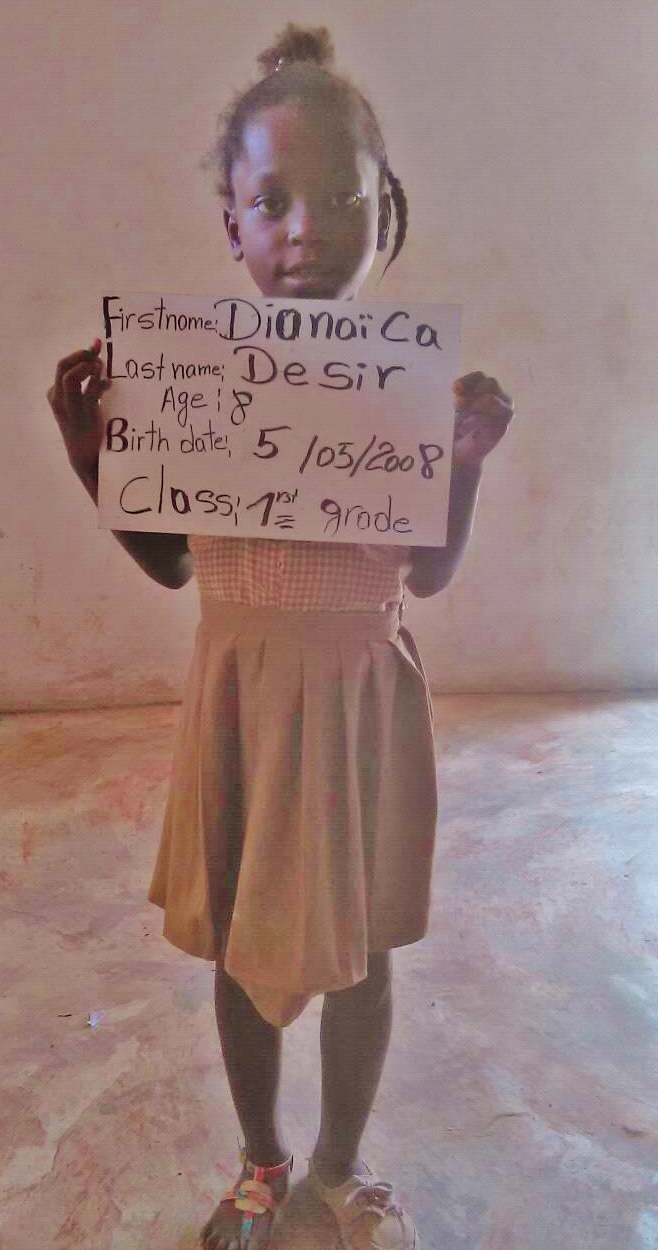 Firstname: Dianaïca
Last name; Desir
Age; 8
Birth date; 5/05/2008
Class; 1rst grade